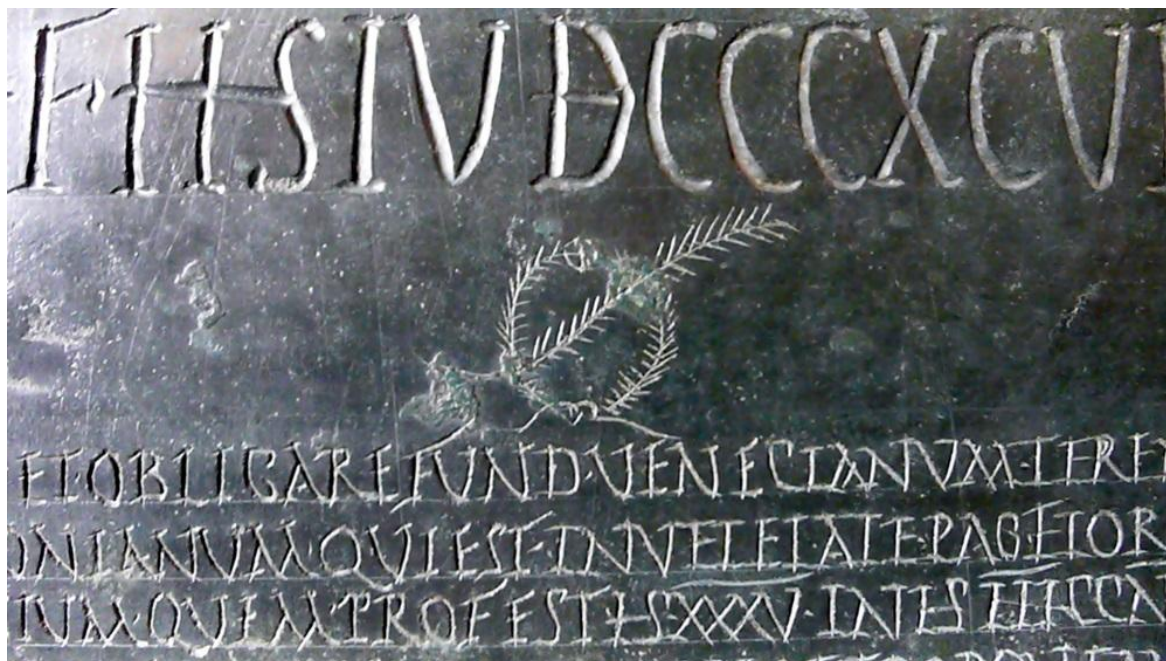 F·HHS IV DCCCXCV
ET·OBLIGARE FVND·VENECIANVM·TERE
ONIANVM·QVI EST·IN VELEIATE PAG FLOR
IVM·QVEM·PROF EST HS XXXV·IN HS